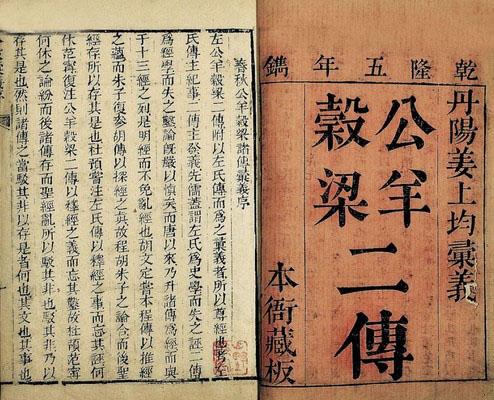 乾隆五年鐫
丹陽姜上均彙義
公羊
穀梁
二傳
本衙藏板
春秋公羊穀梁諸傳彙義序
公羊穀梁二傳附以左氏傳而爲之彙義者所以尊經也考左
氏傳主紀事二傳主發義先儒蓋謂左氏爲史學而失之誣二傳
爲經學而失之鑿論旣嚴以慎矣而唐以來乃升諸傳爲經而與
于十三經之列是明經而不免亂經也胡文定嘗本程傳以推經
之蘊而朱子復參胡傳以探經之真故程胡朱子之論合而後聖
經存所以存其是也杜預嘗注左氏傳以釋經之事而忘其誣何
休范甯復注公羊穀梁二傳以釋經之義而忘其鑿故杜預范甯
何休之論紛而後諸傳存而聖經亂所以駁其非也駁其非乃以
存其是也然則諸傳之當駁其非以存是者何也其文也其事也